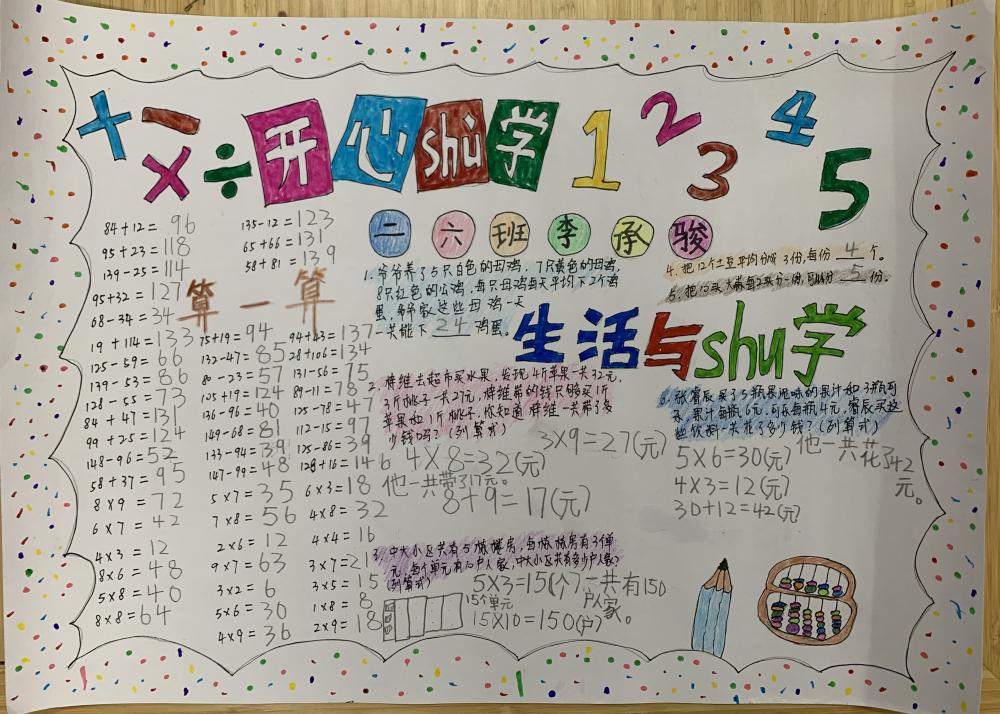 + - × ÷ 开心shù学 1 2 3 4 5
二六班李承骏
84+12=96
95+23=118
139-25=114
95+32=127
68-34=34
135-12=123
65+66=131
58+81=139
算一算
19+114=133
125-59=66
139-53=86
128-55=73
84+47=131
99+25=124
148-96=52
58+37=95
8×9=72
6×7=42
4×3=12
8×6=48
5×8=40
8×8=64
75+19=94
132-47=85
80-23=57
105+19=124
136-96=40
149-68=81
133-94=39
147-99=48
5×7=35
7×8=56
2×6=12
9×7=63
3×2=6
5×6=30
4×9=36
94+43=137
28+106=134
131-56=75
89-11=78
125-78=47
112-15=97
125-86=39
128+16=146
6×3=18
4×8=32
4×4=16
3×7=21
3×5=15
1×8=8
2×9=18
1、爷爷养了5只白色的母鸡，7只黄色的母鸡，
8只红色的公鸡，每只母鸡每天平均下2个鸡
蛋，爷爷家这些母鸡一天
一共能下24鸡蛋。
4、把12个土豆平均分成3份，每份4个。
5份。
生活与shu学
2、梓维去超市买水果，发现4斤苹果一共32元，
3斤桃子一共27元，梓维带的钱只够买1斤
苹果和1斤桃子，你知道梓维一共带了多
少钱吗？（列算式）
4×8=32(元)
3×9=27(元)
他一共带了17元。
8+9=17(元)
3、中大小区共有5栋楼房，每栋楼房有3个单
元，每个单元有10户人家，中大小区共有多少户人家？
(列算式)
5×3=15(个)
15个单元
15×10=150(户)
一共有150
户人家。
6、张睿辰买了5瓶果味的果汁和3瓶可
乐，果汁每瓶6元，可乐每瓶4元，睿辰买这
些饮料一共花了多少钱？(列算式)
5×6=30(元)
4×3=12(元)
30+12=42(元)
他一共花了42
元。